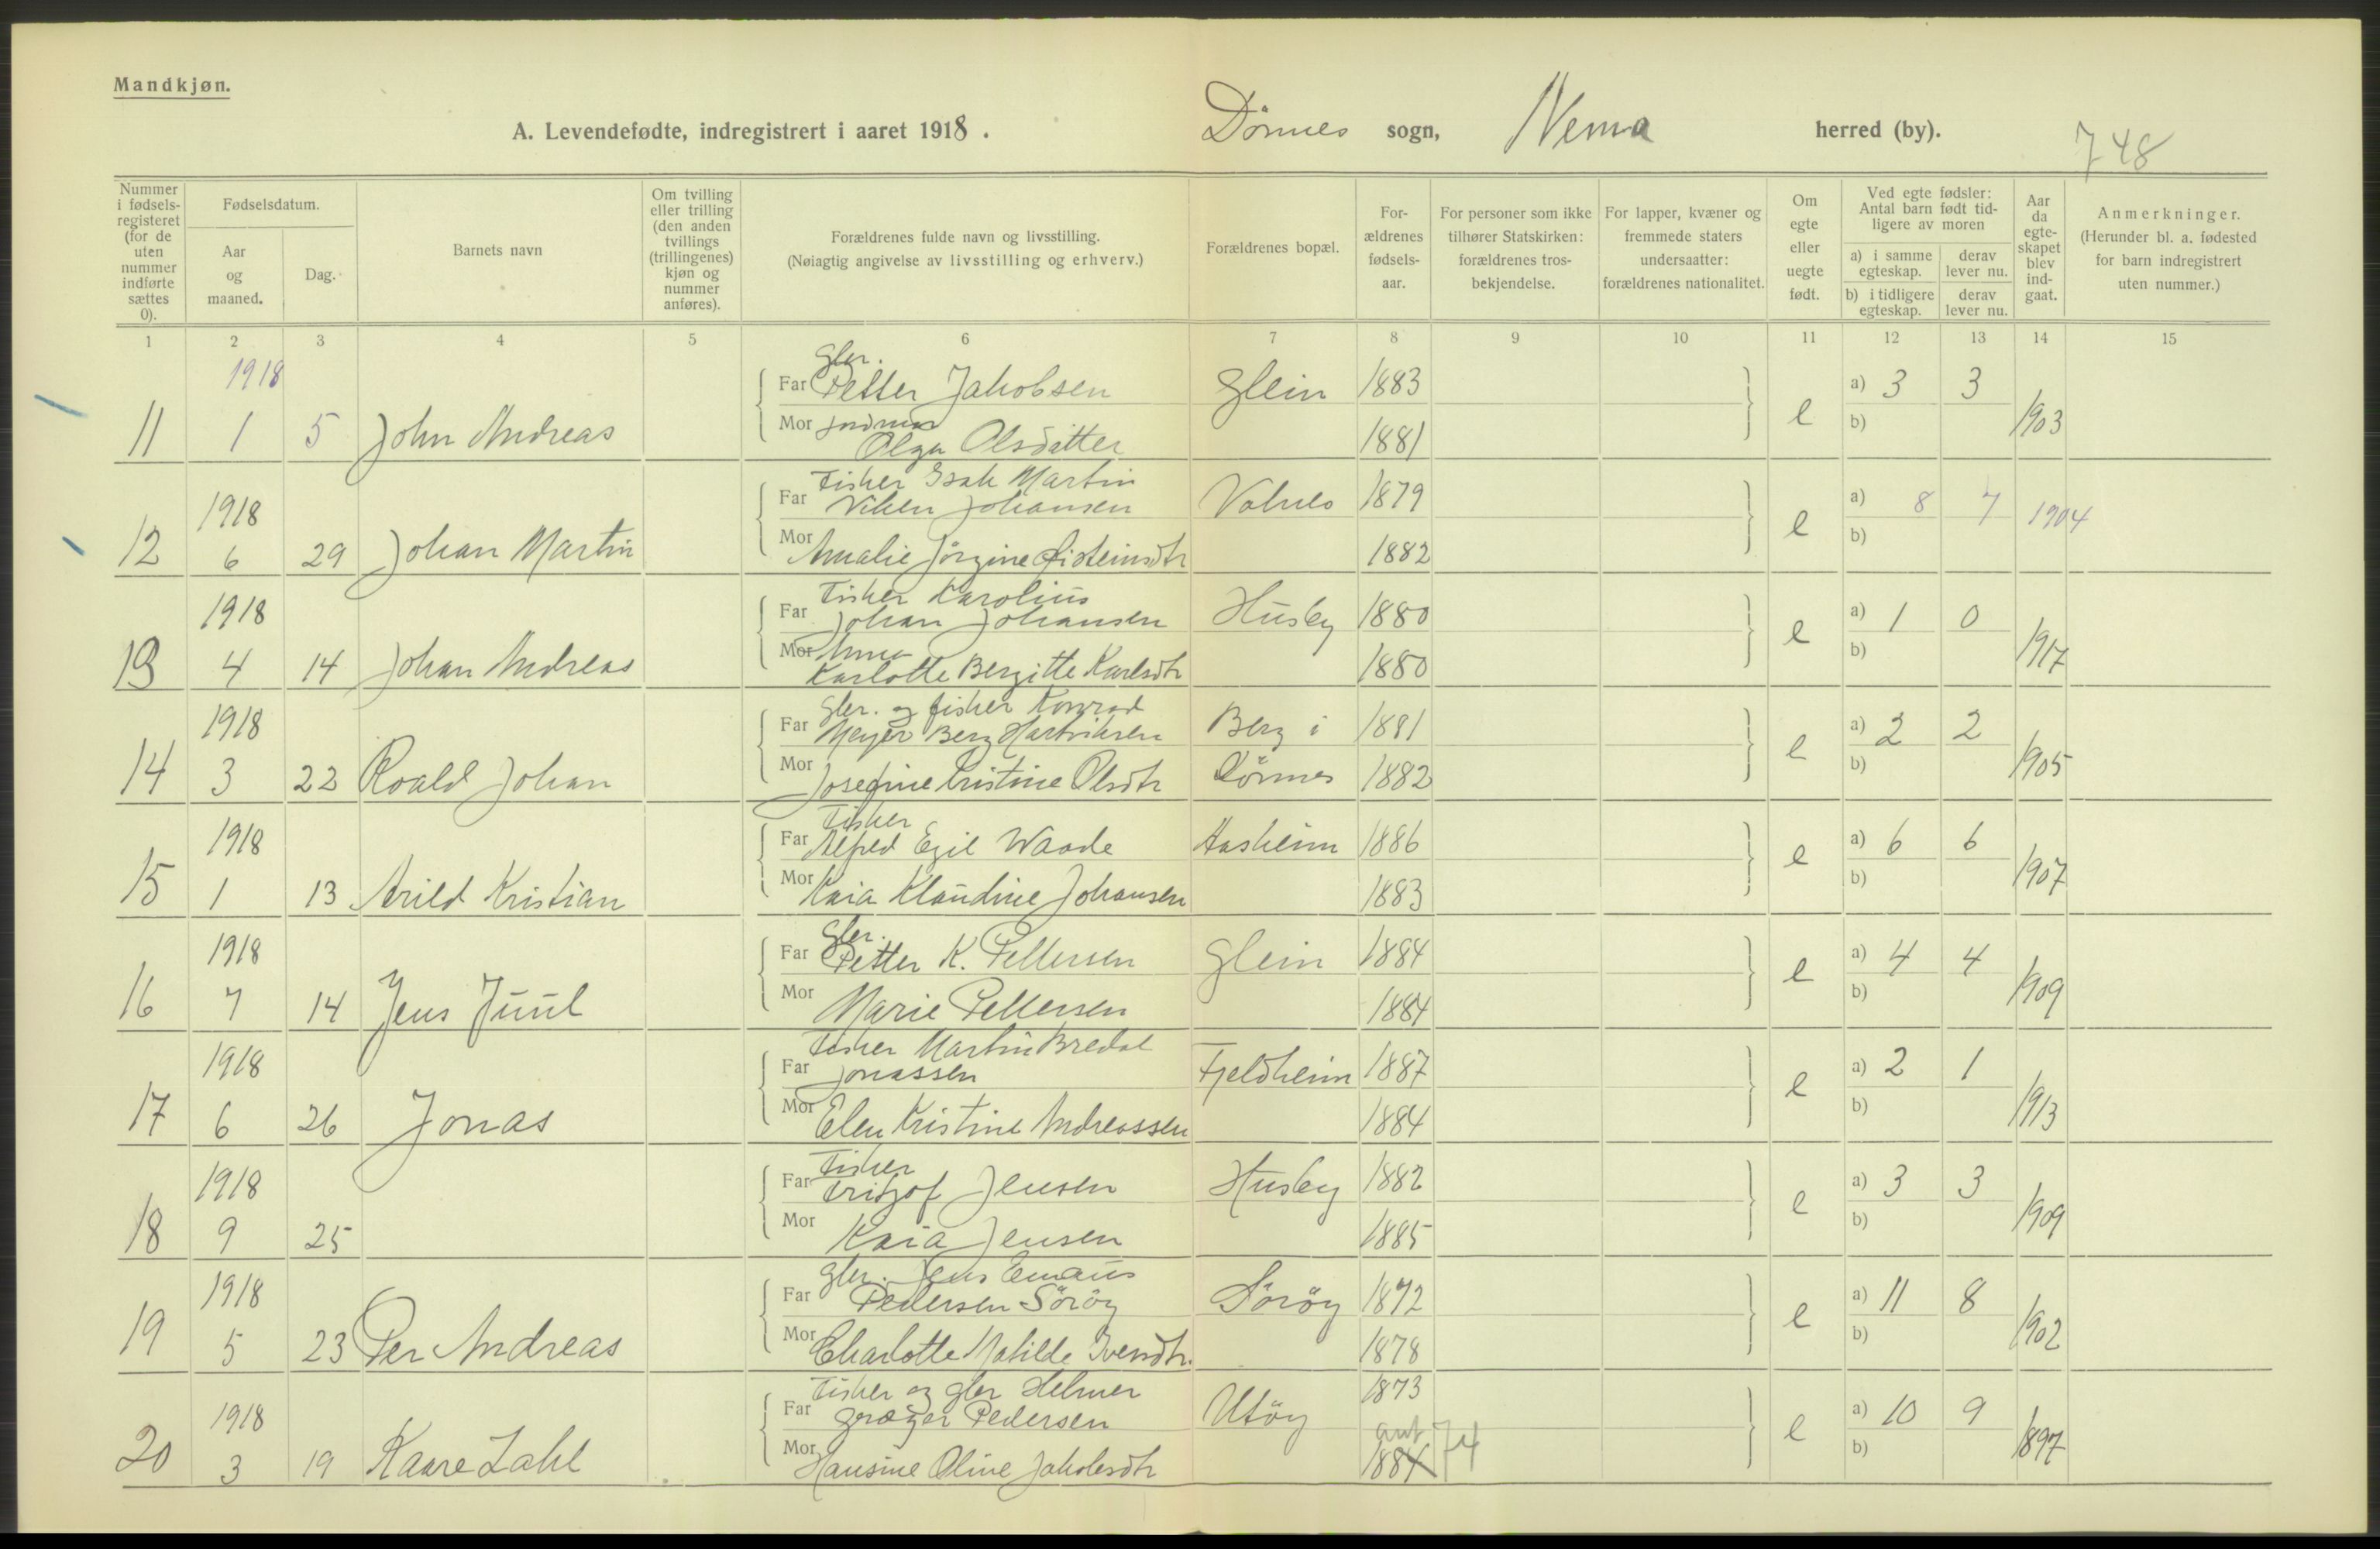 Mandkjøn.
A. Levendefødte, indregistrert i aaret 1918. Dönnes sogn, Nesna herred (by).
748
Nummer i fødsels-registeret (for de uten nummer indførte sættes 0).
Fødselsdatum.
Aar og maaned.
Dag.
Barnets navn
Om tvilling eller trilling (den anden tvillings (trillingenes) kjøn og nummer anføres).
Forældrenes fulde navn og livsstilling.
(Nøiagtig angivelse av livsstilling og erhverv.)
Forældrenes bopæl.
For-ældrenes fødsels-aar.
For personer som ikke tilhører Statskirken: forældrenes tros-bekjendelse.
For lapper, kvæner og fremmede staters undersaatter: forældrenes nationalitet.
Om egte eller uegte født.
Ved egte fødsler: Antal barn født tid-ligere av moren
a) i samme egteskap.
derav lever nu.
b) i tidligere egteskap.
derav lever nu.
Aar da egte-skapet blev ind-gaat.
Anmerkninger.
(Herunder bl. a. fødested for barn indregistrert uten nummer.)
1 2 3 4 5 6 7 8 9 10 11 12 13 14 15
1918 Gbr.
Far Petter Jakobsen Glein 1883 a) 3 3
11 1 5 John Andreas Mor
Olga Olsdatter 1881 e b) 1903
Fisker Isak Martin
1918 Far Johansen 1879 a) 8 7 1904
12 6 29 Johan Martin Mor Amalie Jörgine Øisteinsdtr 1882 e b)
Fisker Karolius
1918 Far Johan Johansen Husby 1880 a) 1 0
13 4 14 Johan Andreas Mor Anna
Karlotte Bergitte Karlsdtr 1880 e b) 1917
Gbr. og fisker Konrad
1918 Far Meyer Berg Hartviksen Berg i 1881 a) 2 2
14 3 22 Roald Johan Mor Josefine Kristine Olsdtr Dönnes 1882 e b) 1905
Fisker
1918 Far Alfred Egil Waade Aasheim 1886 a) 6 6
15 1 13 Arild Kristian Mor Kaia Klaudine Johansen 1883 e b) 1907
Gbr.
1918 Far Petter K. Pettersen Glein 1884 a) 4 4
16 7 14 Jens Juul Mor Marie Pettersen 1884 e b) 1909
Fisker Martin Bredal
1918 Far Jonassen Fjeldheim 1887 a) 2 1
17 6 26 Jonas Mor Elen Kristine Andreassen 1884 e b) 1913
Fisker
1918 Far Fritjof Jensen Husby 1882 a) 3 3
18 9 25 Mor Kaia Jensen 1885 e b) 1909
Gbr. Jens Emaus
1918 Far Pedersen Söröy Söröy 1872 a) 11 8
19 5 23 Per Andreas Mor Charlotte Matilde Iversdtr. 1878 e b) 1902
Fisker og gbr Helmer 1873
1918 Far Græger Pedersen Utöy ant 74 a) 10 9
20 3 19 Kaare Zahl Mor Hansine Oline Jakobsdtr 1884 e b) 1897